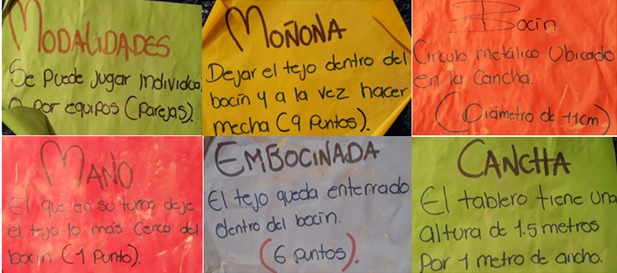 MODALIDADES
Se puede jugar individual
o por equipos (parejas).
MOÑONA
Dejar el tejo dentro del
bocín y a la vez hacer
mecha (9 puntos).
Bocin
Circulo metálico Ubicado
en la Cancha.
(Diámetro de 11cm)
MANO
El que en su turno deje
el tejo lo más cerca del
bocín (1 punto).
EMBOCINADA
El tejo queda enterrado
dentro del bocin.
(6 puntos).
CANCHA
El tablero tiene una
altura de 1.5 metros
por 1 metro de ancho.